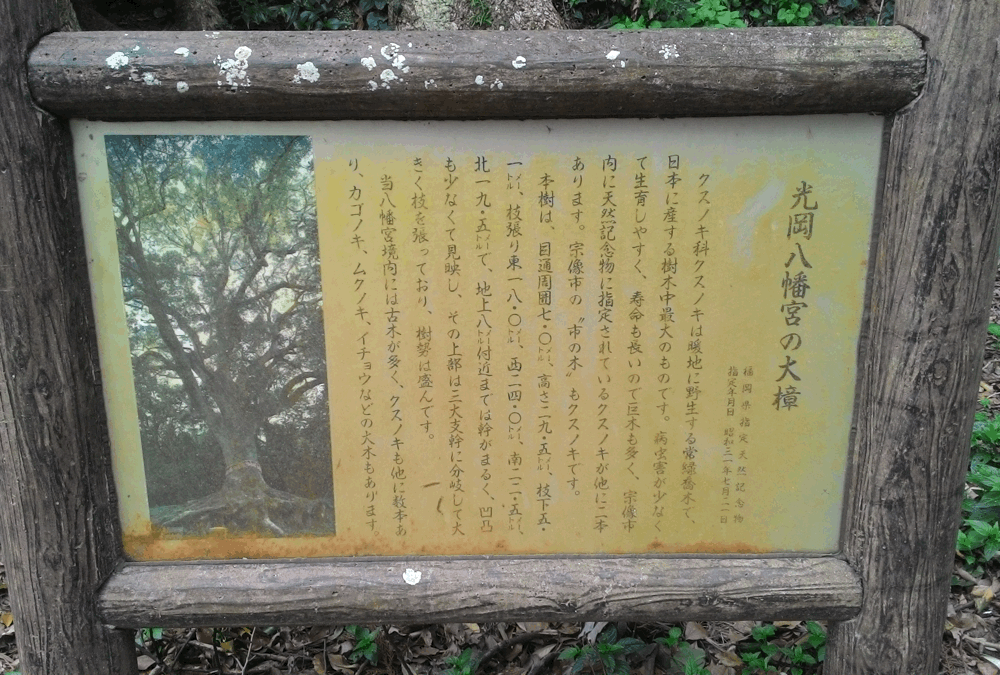 光岡八幡宮の大樟
福岡県指定天然記念物
指定年月日 昭和三一年七月二一日
クスノキ科クスノキは暖地に野生する常緑喬木で、
日本に産する樹木中最大のものです。病虫害が少なく
て生育しやすく、寿命も長いので巨木も多く、宗像市
内に天然記念物に指定されているクスノキが他に二本
あります。宗像市の〝市の木〟もクスノキです。
本樹は、目通周囲七・〇メートル、高さ二九・五メートル、枝下五・
一メートル、枝張り東一八・〇メートル、西二四・〇メートル、南二二・五メートル、
北一九・五メートルで、地上八メートル付近までは幹がまるく、凹凸
も少なくて見映し、その上部は三大支幹に分岐して大
きく枝を張っており、樹勢は盛んです。
当八幡宮境内には古木が多く、クスノキも他に数本あ
り、カゴノキ、ムクノキ、イチョウなどの大木もあります。